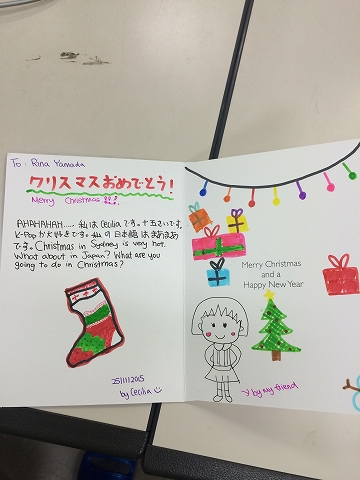 To: Rina Yamada
クリスマスおめでとう!
Merry Christmas!!!
AHAHAHAH..... 私は Cecilia です。十五さいです。
K-Pop が大好きです。私の日本語はまあまあ
です。Christmas in Sydney is very hot.
What about in Japan? What are you
going to do in Christmas?
25/11/2015
by Cecilia
Merry Christmas
and a
Happy New Year
by my friend